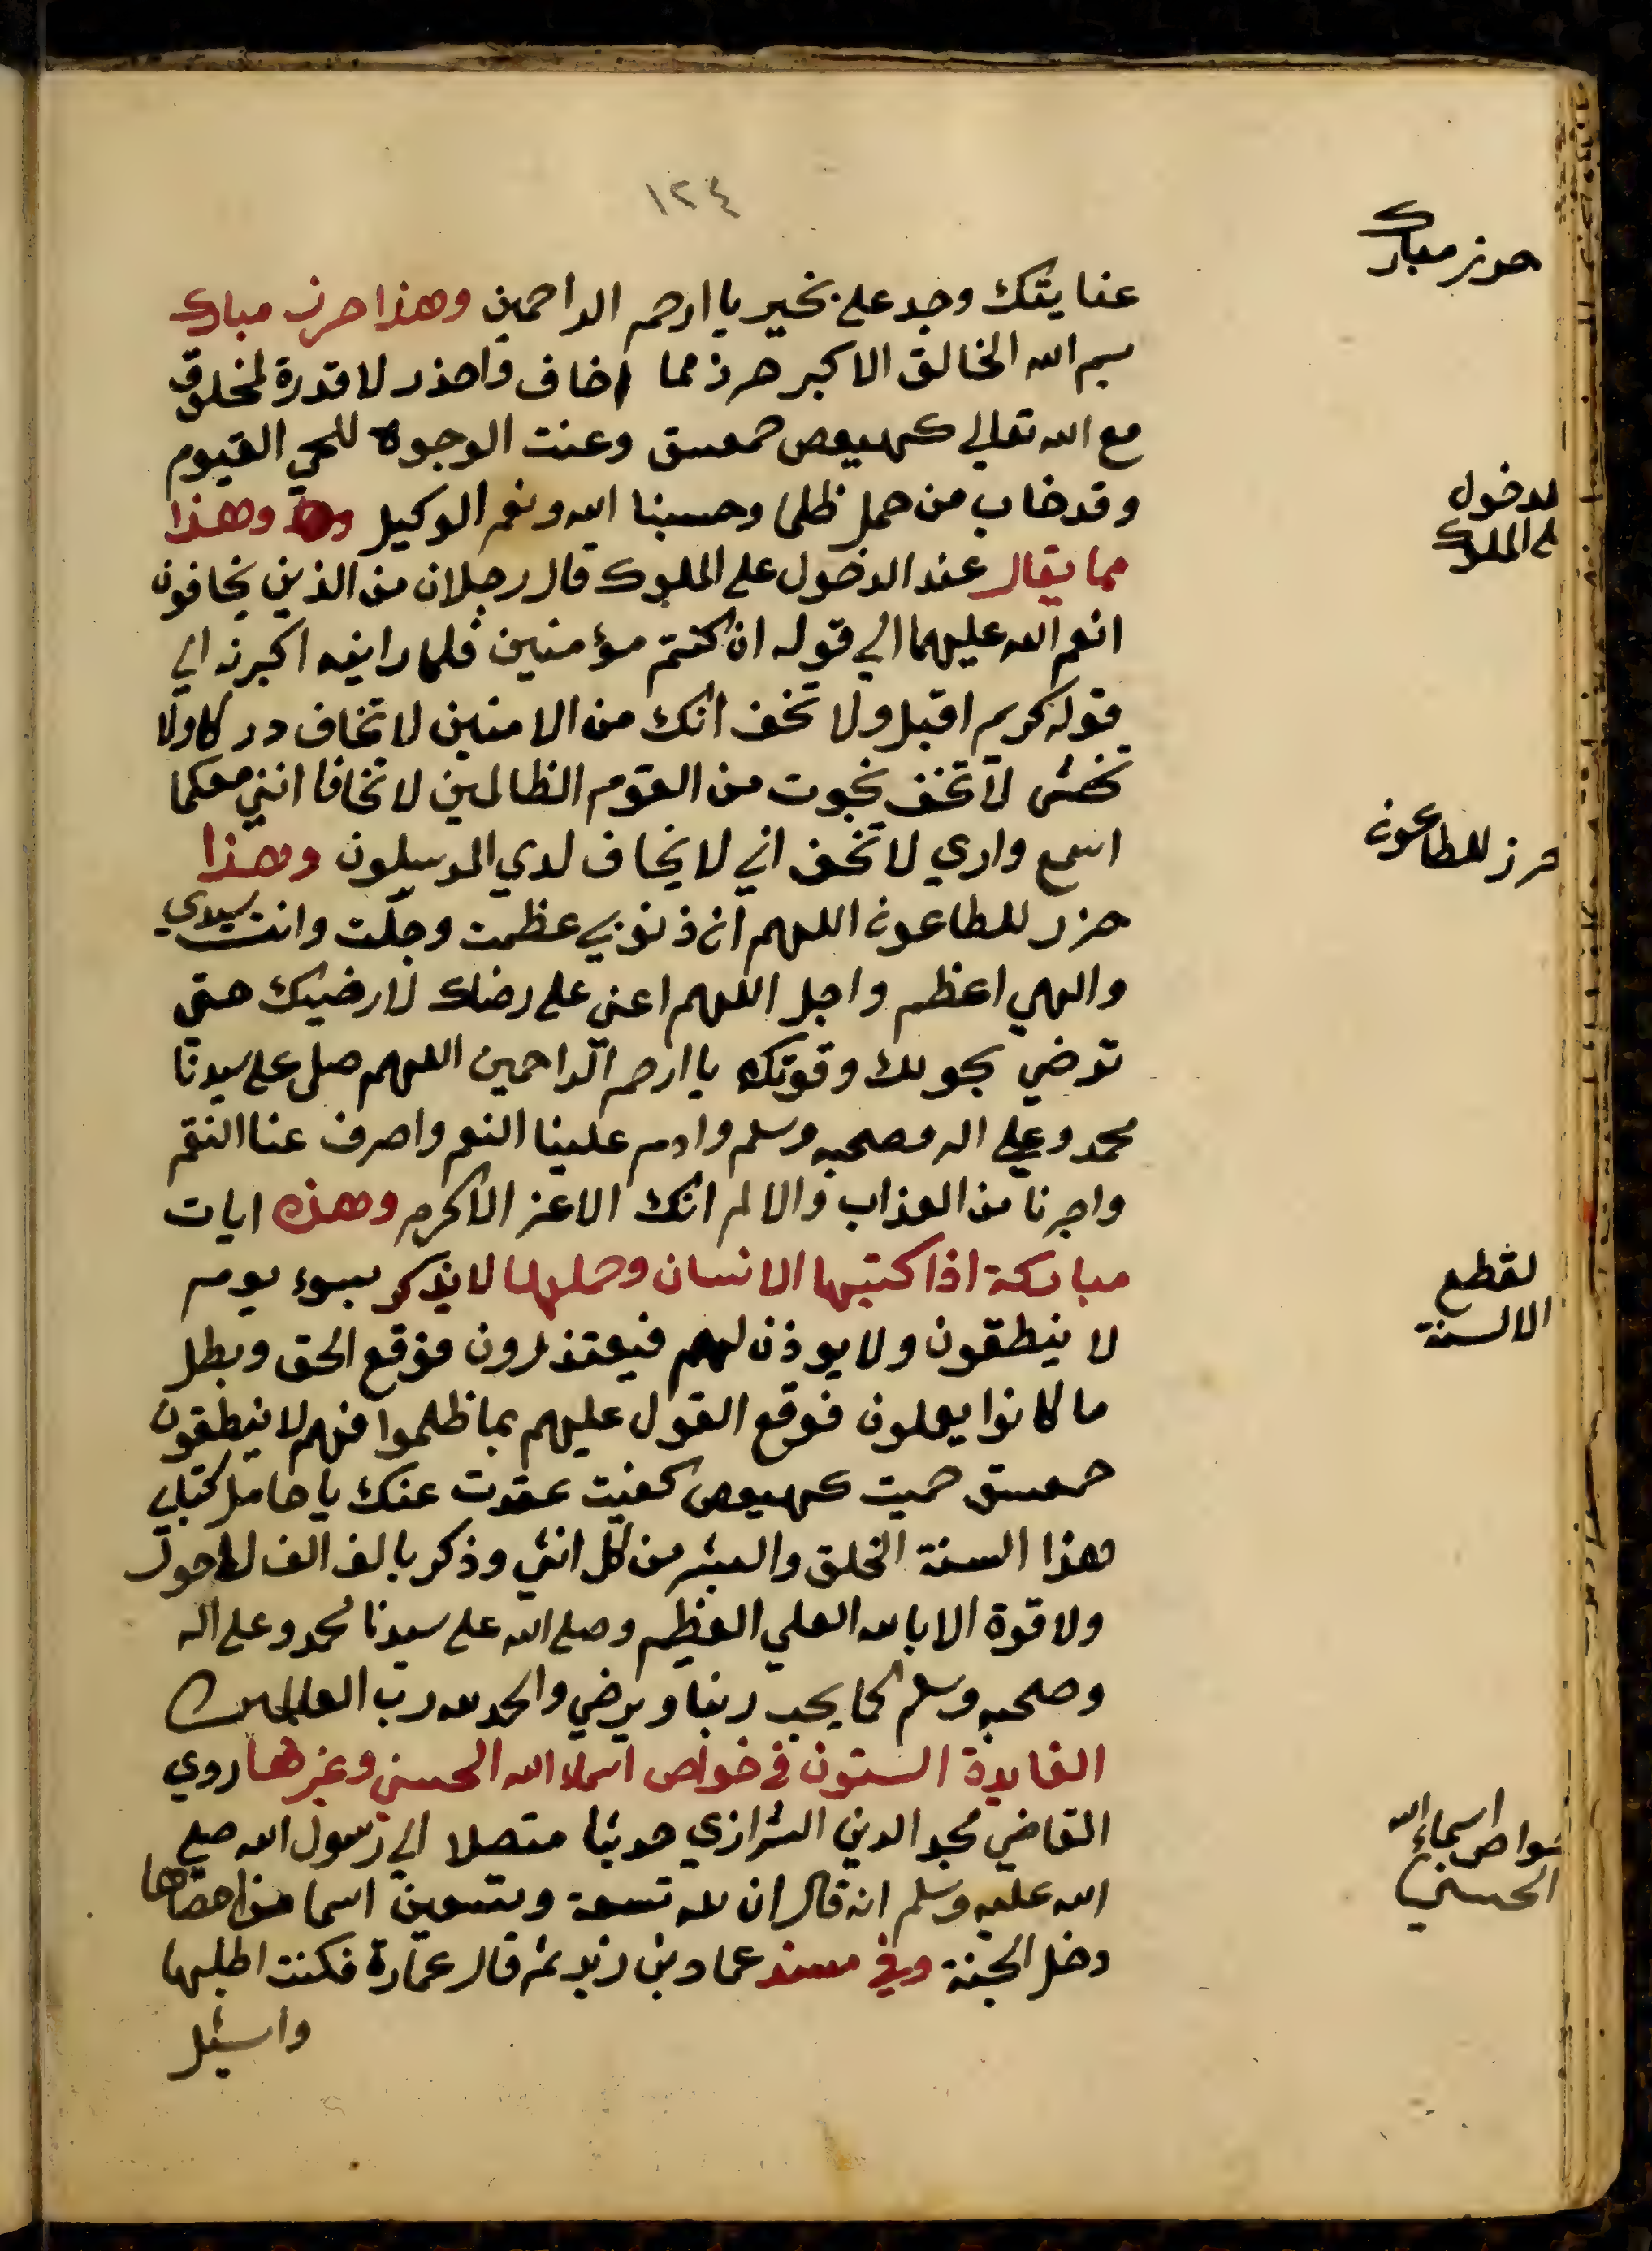 ١٢٤
حرز مبارك
عنايتك وجد علي بخير يا ارحم الراحمين وهذا حرز مبارك
بسم الله الخالق الاكبر حرز مما اخاف واحذر لا قدرة لمخلوق
مع الله تعالي كهيعص حمعسق وعنت الوجوه للحي القيوم
وقد خاب من حمل ظلما وحسبنا الله ونعم الوكيل وهذا
للدخول
على الملوك
مما يقال عند الدخول على الملوك قال رجلان من الذين يخافون
انعم الله عليهما الي قوله ان كنتم مؤمنين فلما راينه اكبرنه الي
قوله كريم اقبل ولا تخف انك من الامنين لا تخاف دركا ولا
تخشى لا تخف نجوت من القوم الظالمين لا تخافا انني معكما
اسمع واري لا تخف اني لا يخاف لدي المرسلون وهذا
حرز للطاعون
حرز للطاعون اللهم ان ذنوبي عظمت وجلت وانت سيدي
والهي اعظم واجل اللهم اعني على رضاك لارضيك حتي
ترضي بحولك وقوتك يا ارحم الراحمين اللهم صلى على سيدنا
محمد وعلي اله وصحبه وسلم وادم علينا النعم واصرف عنا النقم
واجرنا من العذاب والالم انك الاعز الاكرم وهذه ايات
لقطع
الالسنة
مباركة اذا كتبها الانسان وحملها لا يذكر بسوء يوم
لا ينطقون ولا يوذن لهم فيعتذرون فوقع الحق وبطل
ما كانوا يعملون فوقع القول عليهم بما ظلموا فهم لا ينطقون
حمعسق حميت كهيعص كفيت عقدت عنك يا حامل كتابي
هذا السنة الخلق والبشر من كل انثي وذكر بالف الف لا حول
ولا قوة الا بالله العلي العظيم وصلى الله على سيدنا محمد وعلى اله
وصحبه وسلم كما يحب ربنا ويرضي والحمد لله رب العالمين
الفايدة الستون في خواص اسماء الله الحسني وغيرها روي
خواص اسماء الله
الحسني
القاضي مجد الدين الشرازي حديثا متصلا الي رسول الله صلى
الله عليه وسلم انه قال ان لله تسعة وتسعين اسما من احصاها
دخل الجنة وفي مسند عماد بن زيد ثم قال عمارة فكنت اطلبها
واسئل